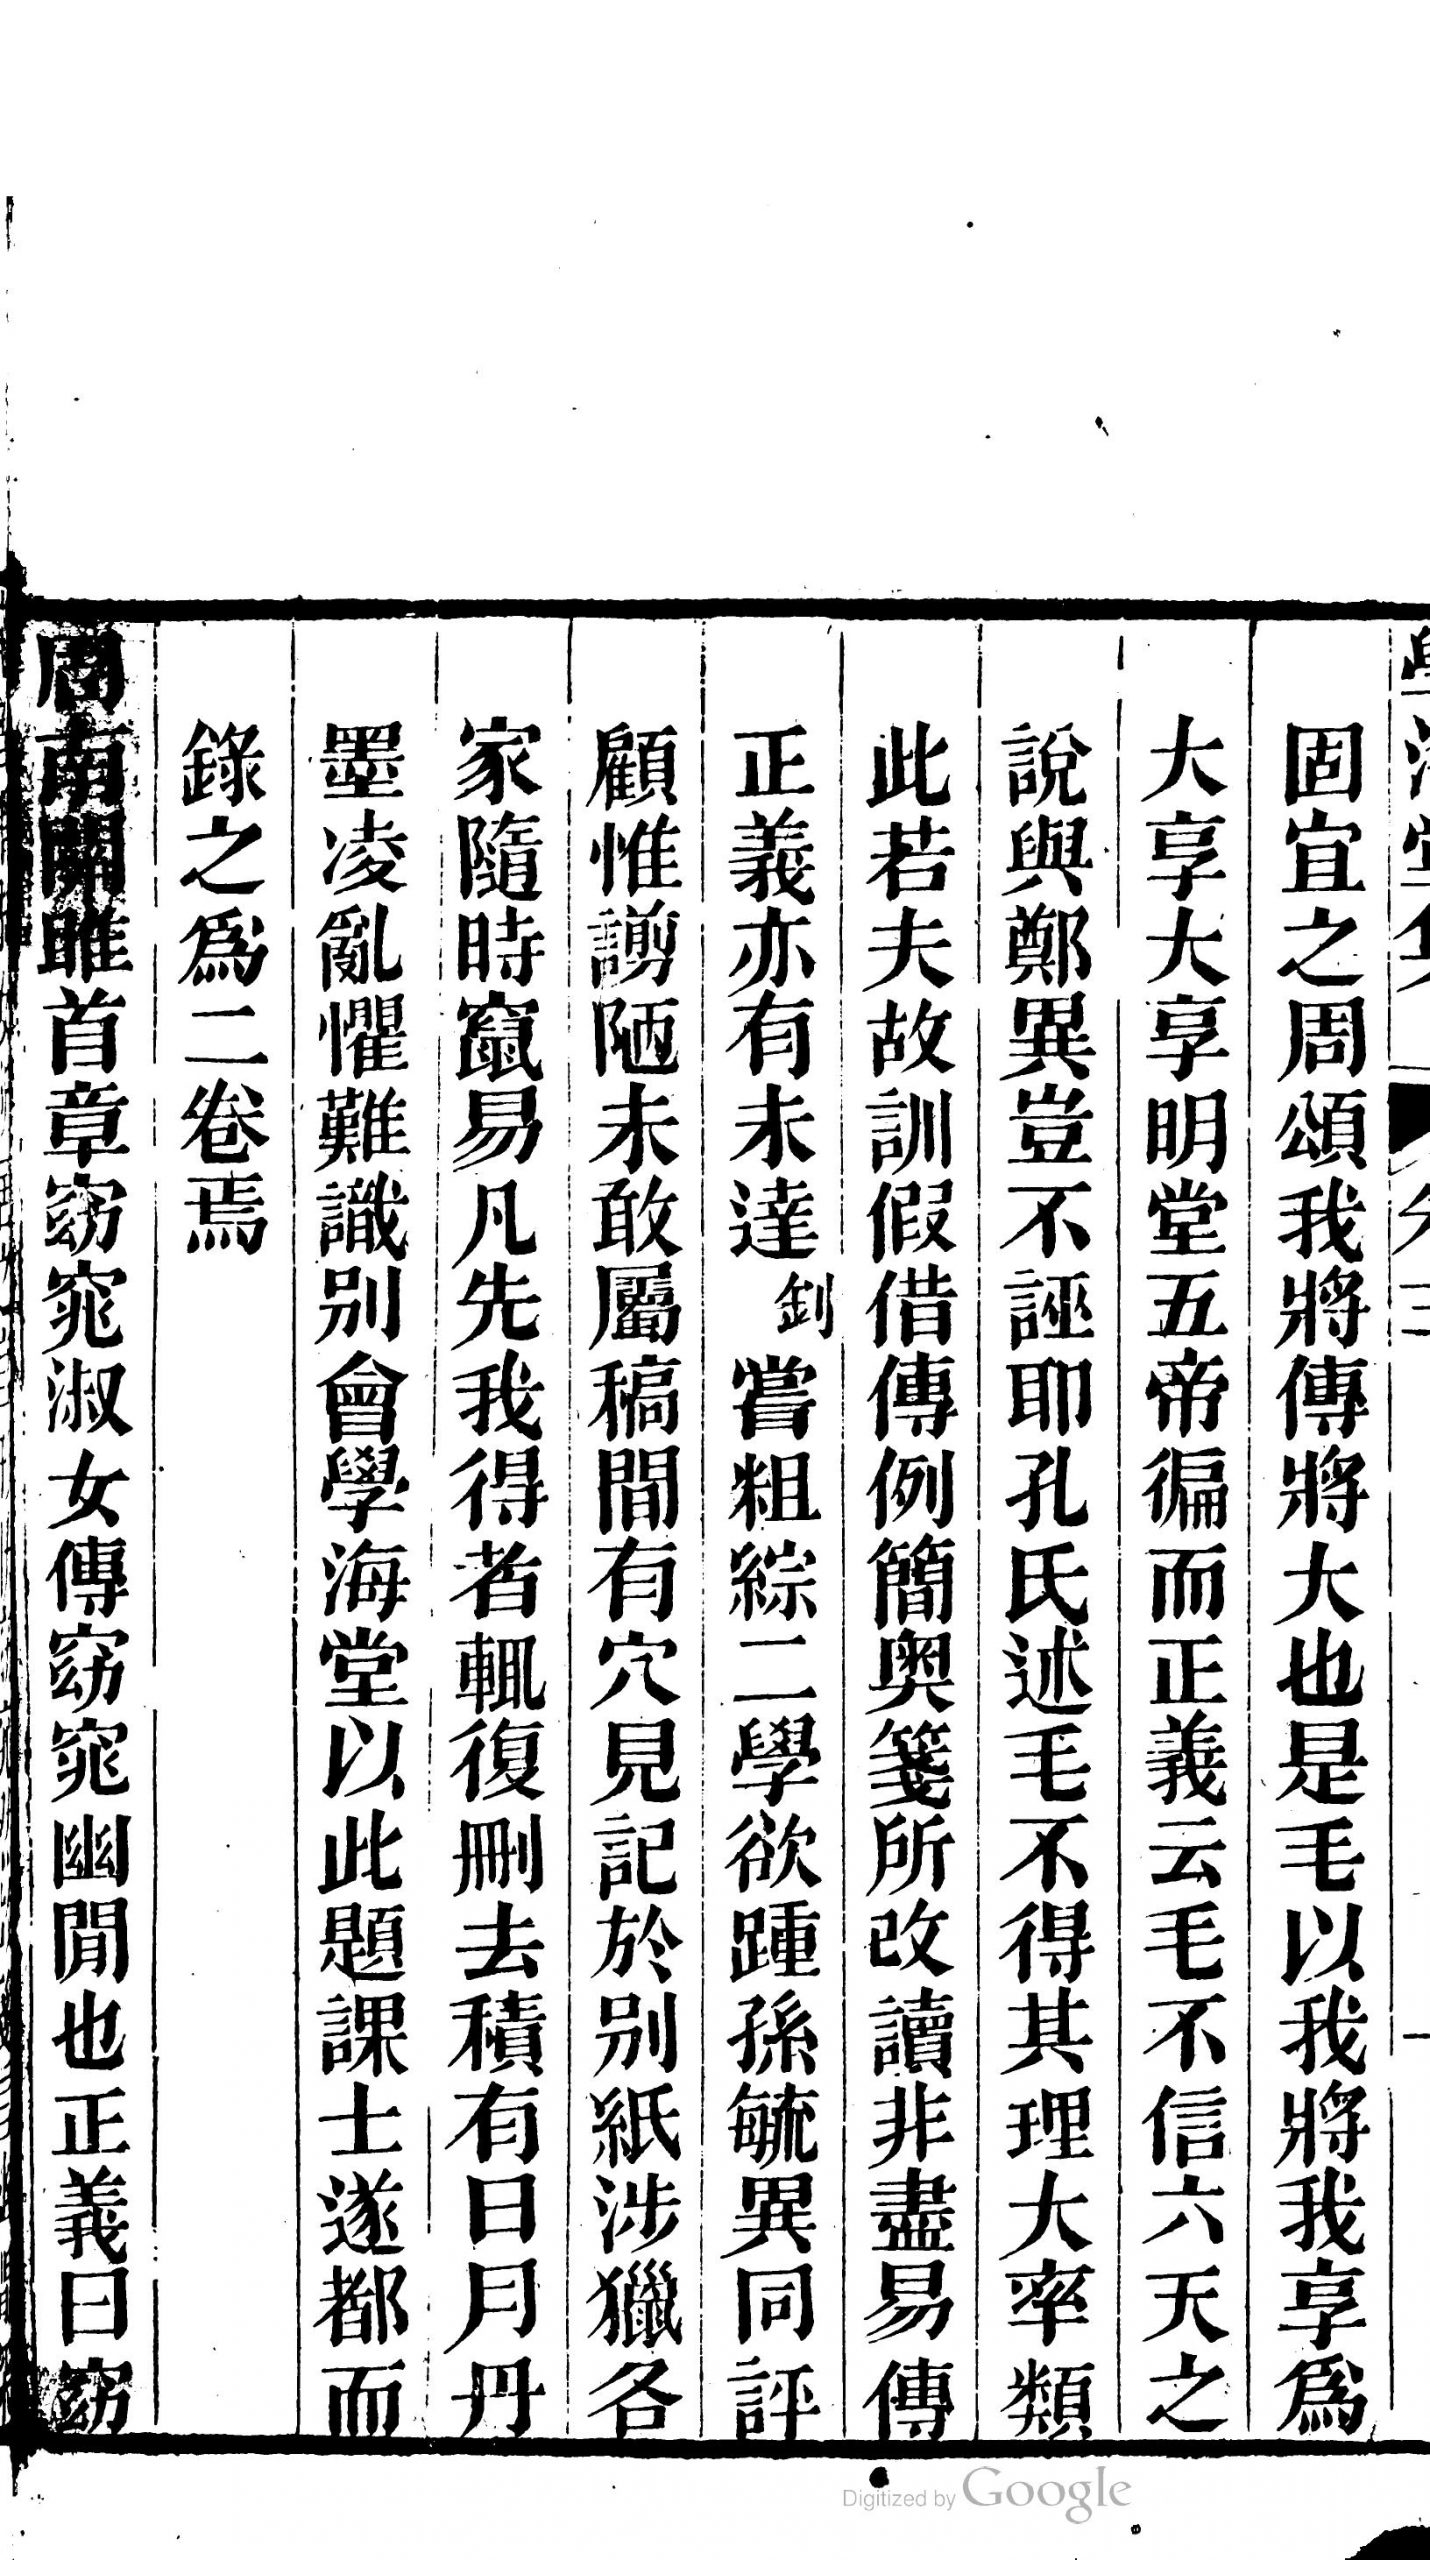 固宜之周頌我將傳將大也是毛以我將我享爲
大享大享明堂五帝徧而正義云毛不信六天之
說與鄭異豈不誣耶孔氏述毛不得其理大率類
此若夫故訓假借傳例簡奧箋所改讀非盡易傳
正義亦有未達釗嘗粗綜二學欲踵孫毓異同評
顧惟謭陋未敢屬稿間有穴見記於別紙涉獵各
家隨時竄易凡先我得者輒復刪去積有日月丹
墨凌亂懼難識別會學海堂以此題課士遂都而
錄之爲二卷焉
周南關雎首章窈窕淑女傳窈窕幽閒也正義曰窈
Digitized by Google